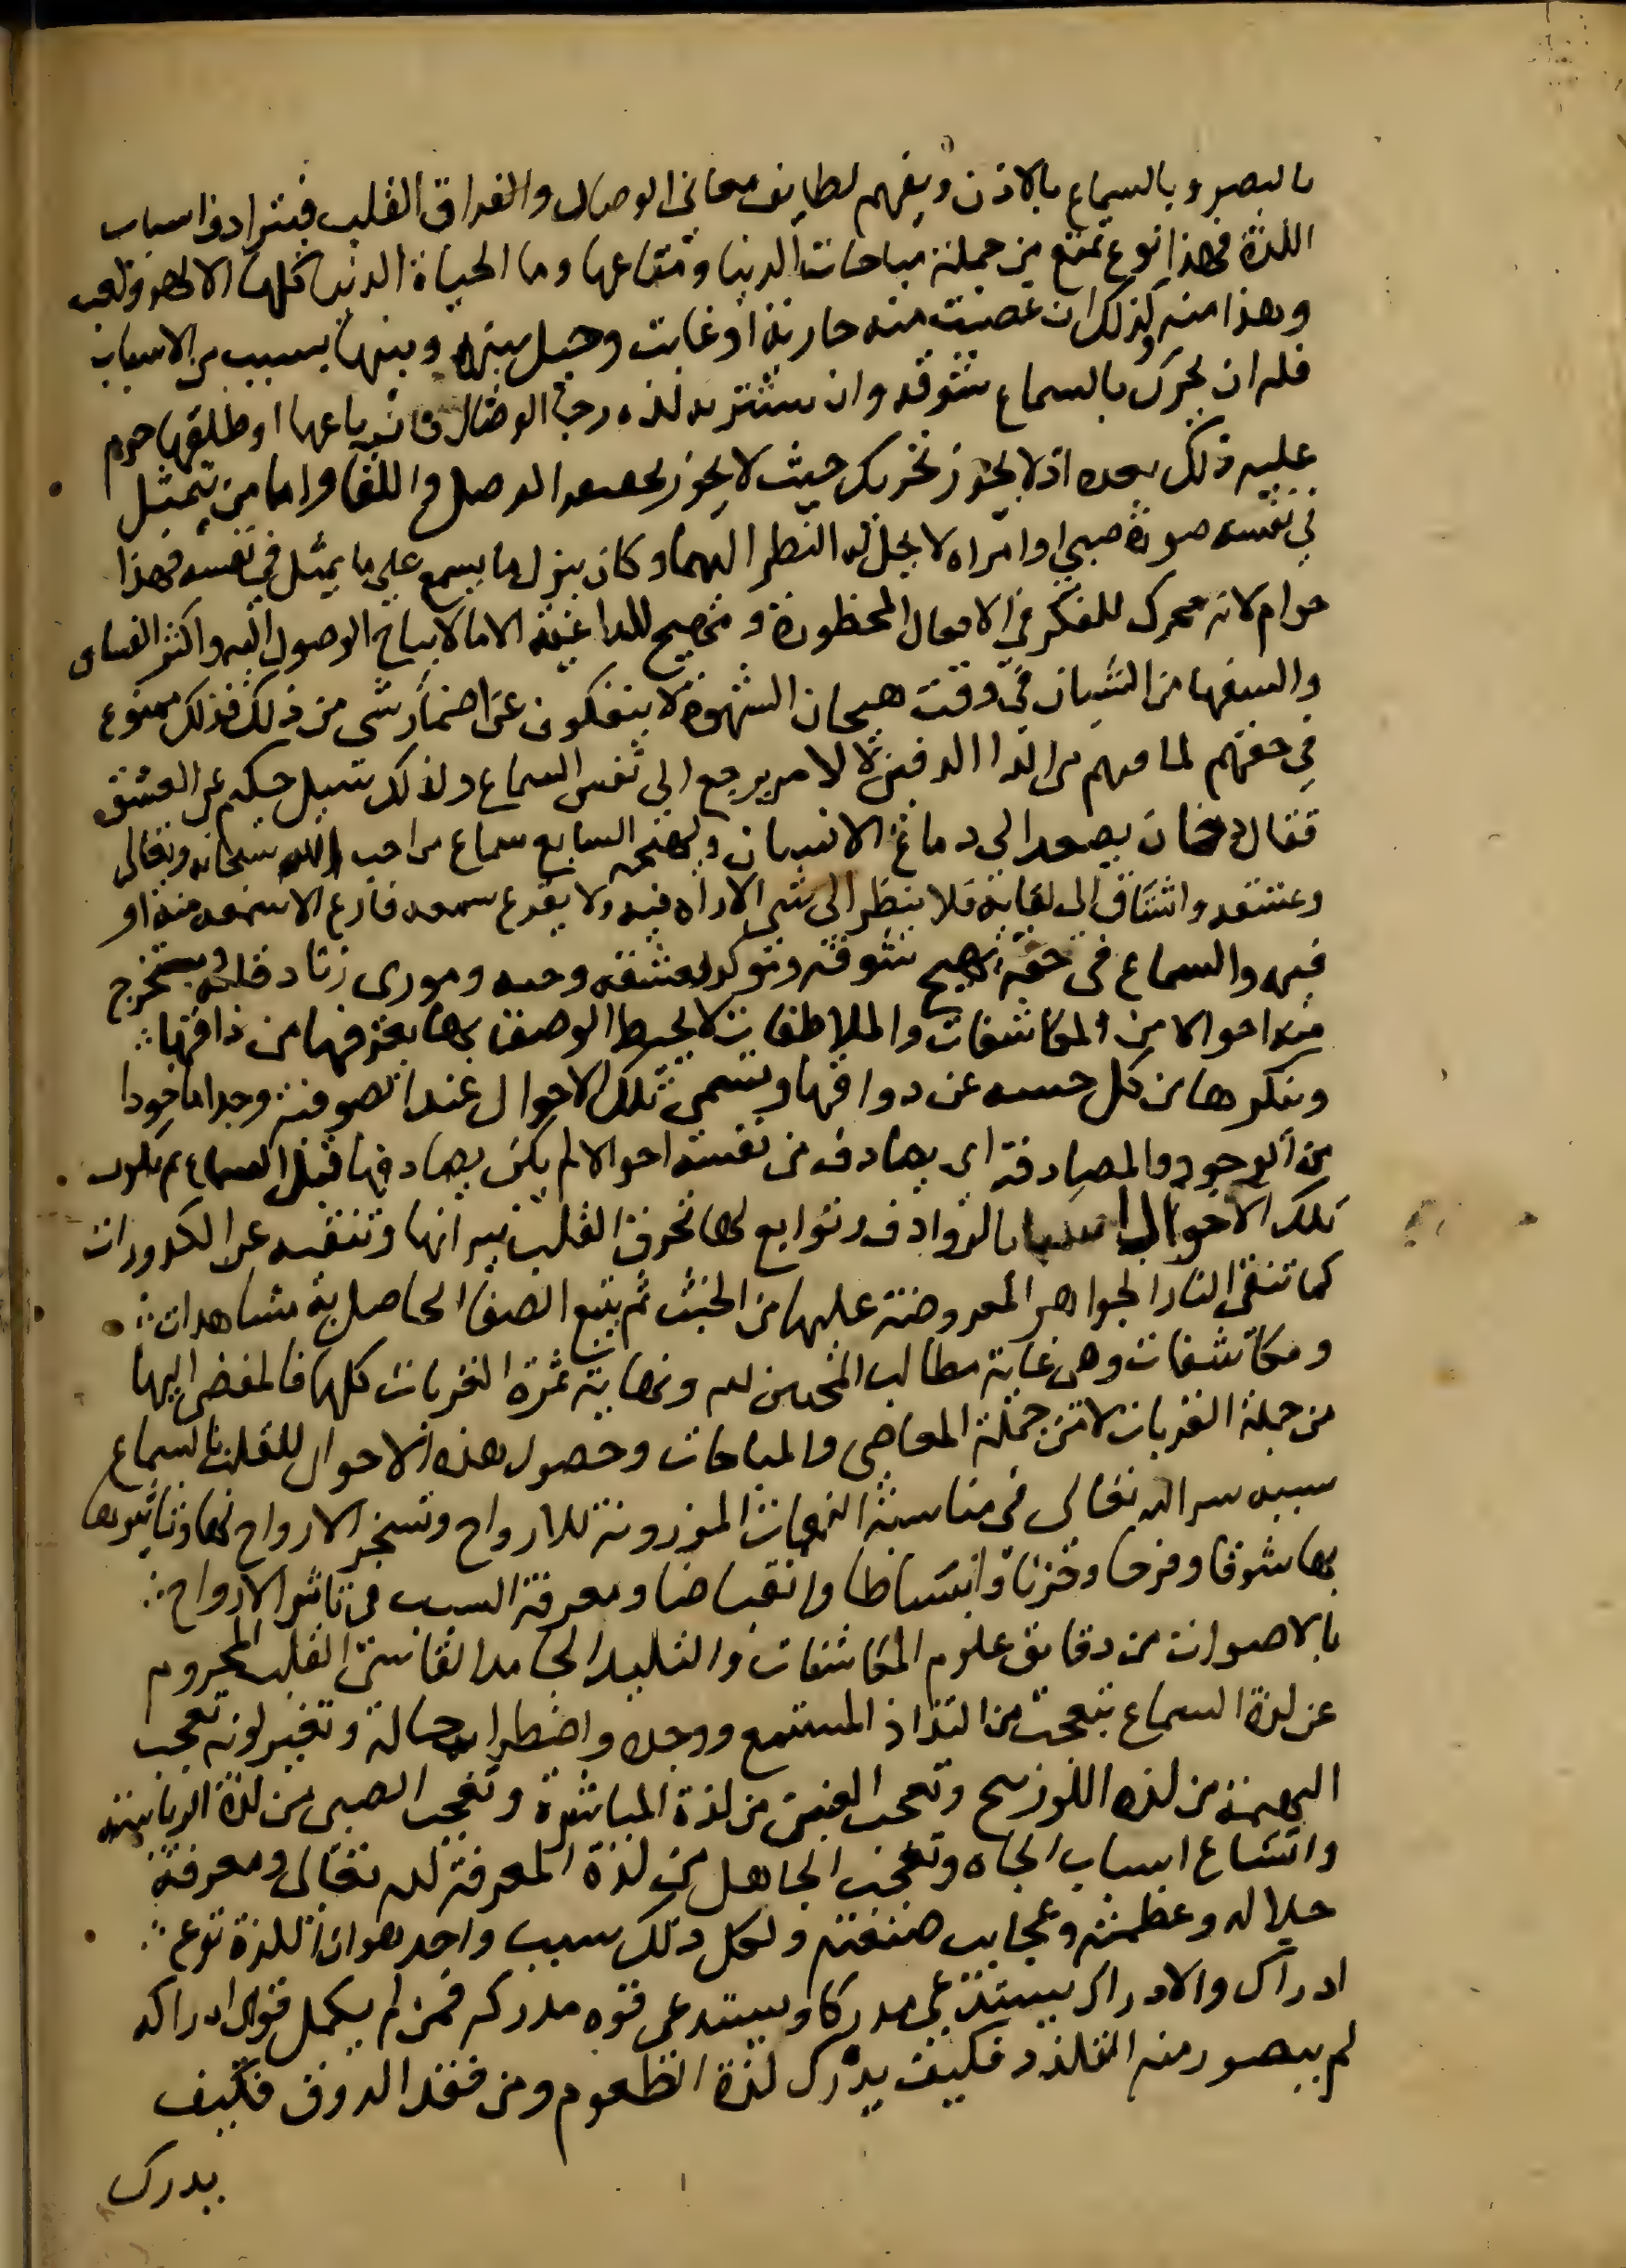 بالبصر وبالسماع بالاذن ويفهم لطايف معاني الوصال والفراق القلب فيترادف اسباب
اللذة فهذا نوع تمتع من جملة مباحات الدنيا ومتاعها وما الحياة الدنيا كلها الا لهو ولعب
وهذا منه كذلك ان غضبت منه جارية او غابت وحيل بينه وبينها بسبب من الاسباب
فله ان يحرك بالسماع شوقه وان يستثير به لذه رجا الوصال فان باعها او طلقها حرم
عليه ذلك بعده اذ لا يجوز تحريك حيث لا يجوز الوصل واللقا واما من يتمثل
في نفسه صورة صبي او امراه لا يحل له النظر اليهما وكان ينزل ما يسمع على ما يمثل في نفسه فهذا
حرام لانه محرك للفكر في الافعال المحظورة و للداعية الا ما لا يباح الوصول اليه واكثر العساق
والسفها من الشبان في وقت هيجان الشهوة لا ينفكون عن اضمار شي من ذلك فذلك ممنوع
في حقهم لما فيهم من الدا الدفين لا لامر يرجع الى نفس السماع ولذلك سيل حكيم عن العشق
فقال دخان يصعد الى دماغ الانسان السابع سماع من احب الله سبحانه وتعالى
وعشقه واشتاق الى لقايه فلا ينظر الى شي الا راه فيه ولا يقرع سمعه قارع الا سمعه منه او
فيه والسماع في حقه يهيج شوقه ويوكد لعشقه وحبه وموري زناد قلبه ويستخرج
منه احوالا من المكاشفات والملاطفات لا يحيط الوصف بها يعرفها من ذاقها
وينكرها من كل حسه عن دواقها وتسمى تلك الاحوال عند الصوفية وجدا ماخوذا
من الوجود والمصادفة اي يصادف من نفسه احوالا لم يكن يصادفها قبل السماع ثم يكون
تلك الاحوال اسبابا لروادف وتوابع لها تحرق القلب بنيرانها وتنقيه عن الكدورات
كما تنقي النار الجواهر المعروضة عليها من الخبث ثم يتبع الصفا الحاصل به مشاهدات
ومكاشفات وهي غاية مطالب المحبين لله ونهاية ثمرة القربات كلها فالمفضي اليها
من جملة القربات لا من جملة المعاصي والمباحات وحصول هذه الاحوال للقلب بالسماع
سببه سر الله تعالى في مناسبة النغمات الموزونة للارواح وتسخير الارواح لها وتاثيرها
بها شوقا وفرحا وحزنا وانبساطا وانقباضا ومعرفة السبب في تاثر الارواح
بالاصوات من دقايق علوم المكاشفات والبليد الجامد القاسي القلب المحروم
عن لذة السماع يتعجب من التذاذ المستمع ووجده واضطراب حاله وتغير لونه تعجب
البهيمة من لذه اللوزينج وتعجب العنين من لذة المباشرة وتعجب الصبي من لذة الرياسة
واتساع اسباب الجاه وتعجب الجاهل من لذة المعرفة لله تعالى ومعرفة
جلاله وعظمته وعجايب صنعته ولكل ذلك سبب واحد هو ان اللذة نوع
ادراك والادراك يستدعي مدركا ويستدعي قوه مدركه فمن لم يكمل قوة ادراكه
لم يتصور منه التلذذ فكيف يدرك لذة الطعوم ومن فقد الذوق فكيف
يدرك